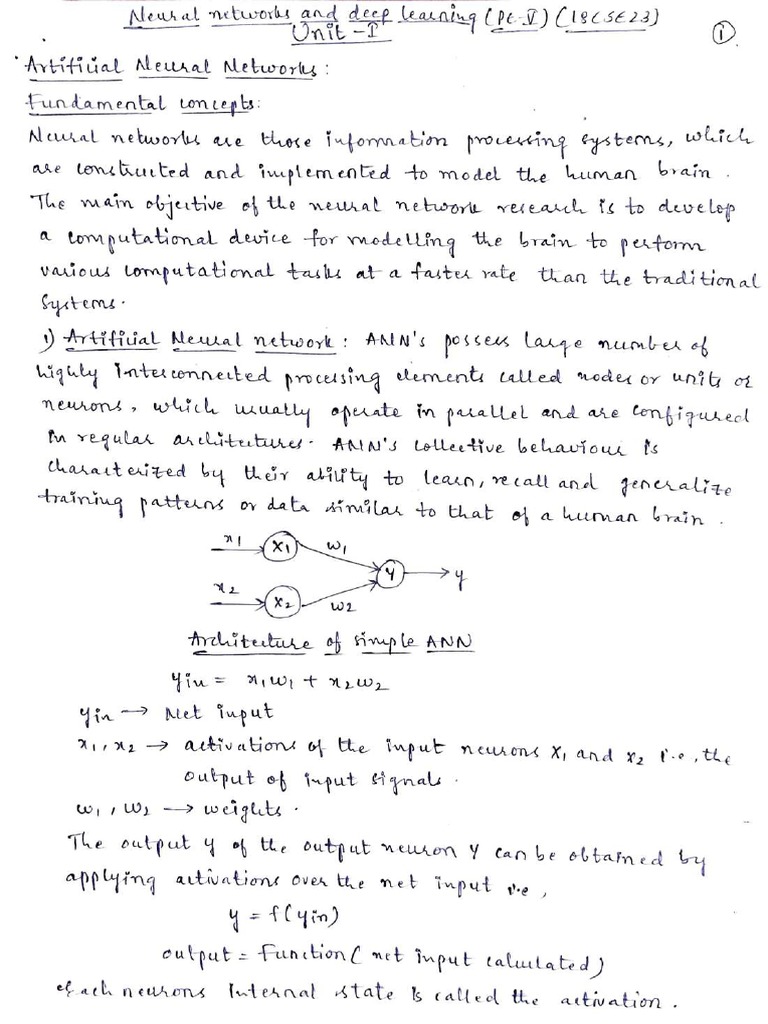 Neural networks and deep learning (PE-V) (18CSE23)
Unit-I
①
Artificial Neural Networks:
Fundamental concepts:
Neural networks are those information processing systems, which
are constructed and implemented to model the human brain.
The main objective of the neural network research is to develop
a computational device for modelling the brain to perform
various computational tasks at a faster rate than the traditional
systems.
1) Artificial Neural network: ANN's possess large number of
highly interconnected processing elements called nodes or units or
neurons, which usually operate in parallel and are configured
in regular architectures. ANN's collective behaviour is
characterized by their ability to learn, recall and generalize
training patterns or data similar to that of a human brain.
x1 X1 w1
Y y
x2 X2 w2
Architecture of simple ANN
yin = x1w1 + x2w2
yin → Net input
x1, x2 → activations of the input neurons X1 and X2 i.e, the
output of input signals.
w1, w2 → weights.
The output y of the output neuron Y can be obtained by
applying activations over the net input i.e,
y = f(yin)
output = Function (net input calculated)
Each neurons internal state is called the activation.